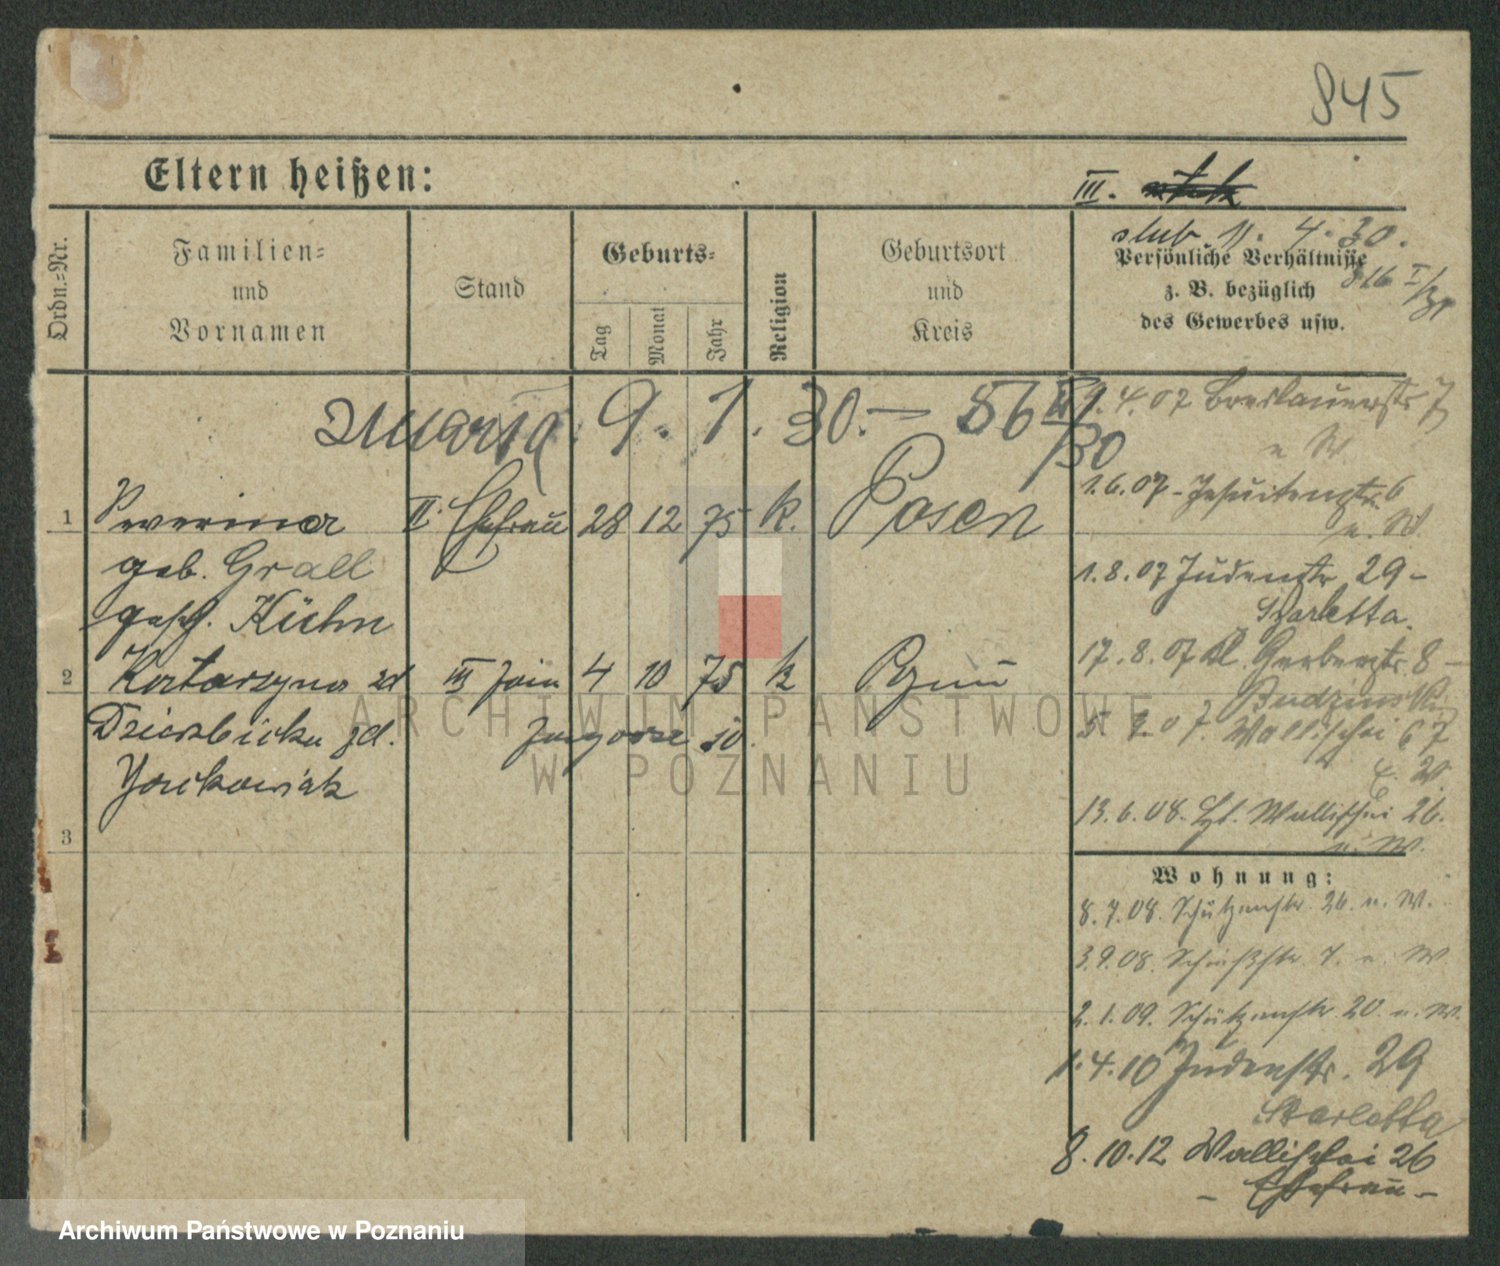 845
Eltern heißen:
III.
slub 11. 4. 30.
Ordn.-Nr.
Familien-
und
Vornamen
Stand
Geburts-
Tag
Monat
Jahr
Religion
Geburtsort
und
Kreis
Persönliche Verhältnisse
z. B. bezüglich
des Gewerbes usw.
zmarła 9. 1. 30. — 56
/30
1 Seweryna II. Ehefrau 28 12 75 k. Posen
geb. Grall
gesch. Kühn
2 Katarzyna III żona 4 10 75 k
Dzierzbicka
3
4.07 Breslauerstr 7
u W
1.6.07 - Jesuitenstr. 6
u. W.
1.8.07 Judenstr 29 -
Skarletta.
17.8.07 Kl. Gerberstr. 8 -
Budzinski
07. Wallischei 67
13.6.08. Wallischei 26.
u. W.
Wohnung:
8.7.08. Schützenstr. 26. u. W.
3.9.08. Schießstr. 7. u. W
2.1.09. Schützenstr. 20. u. W.
1.4.10 Judenstr. 29
Skarletta
8.10.12 Wallischei 26
- Ehefrau -
ARCHIWUM PAŃSTWOWE
W POZNANIU
Archiwum Państwowe w Poznaniu